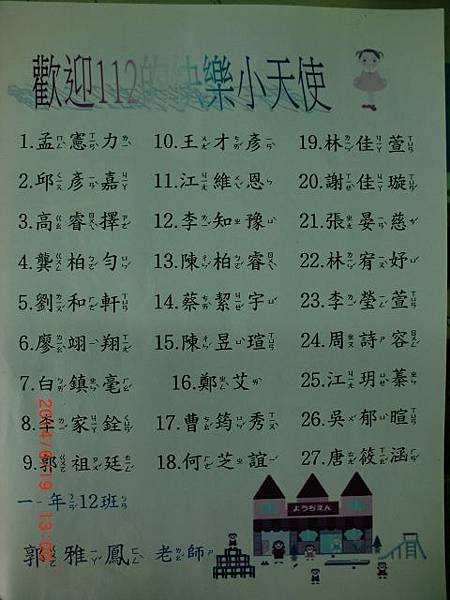 歡迎112的快樂小天使
1.孟憲力
2.邱彥嘉
3.高睿擇
4.龔柏勻
5.劉和軒
6.廖翊翔
7.白鎮毫
8.李家銓
9.郭祖廷
10.王才彥
11.江維恩
12.李知豫
13.陳柏睿
14.蔡絜宇
15.陳昱瑄
16.鄭艾
17.曹筠秀
18.何芝誼
19.林佳萱
20.謝佳璇
21.張晏慈
22.林宥妤
23.李瑩萱
24.周詩容
25.江玥蓁
26.吳郁暄
27.唐筱涵
一年12班
郭雅鳳 老師
ようちえん